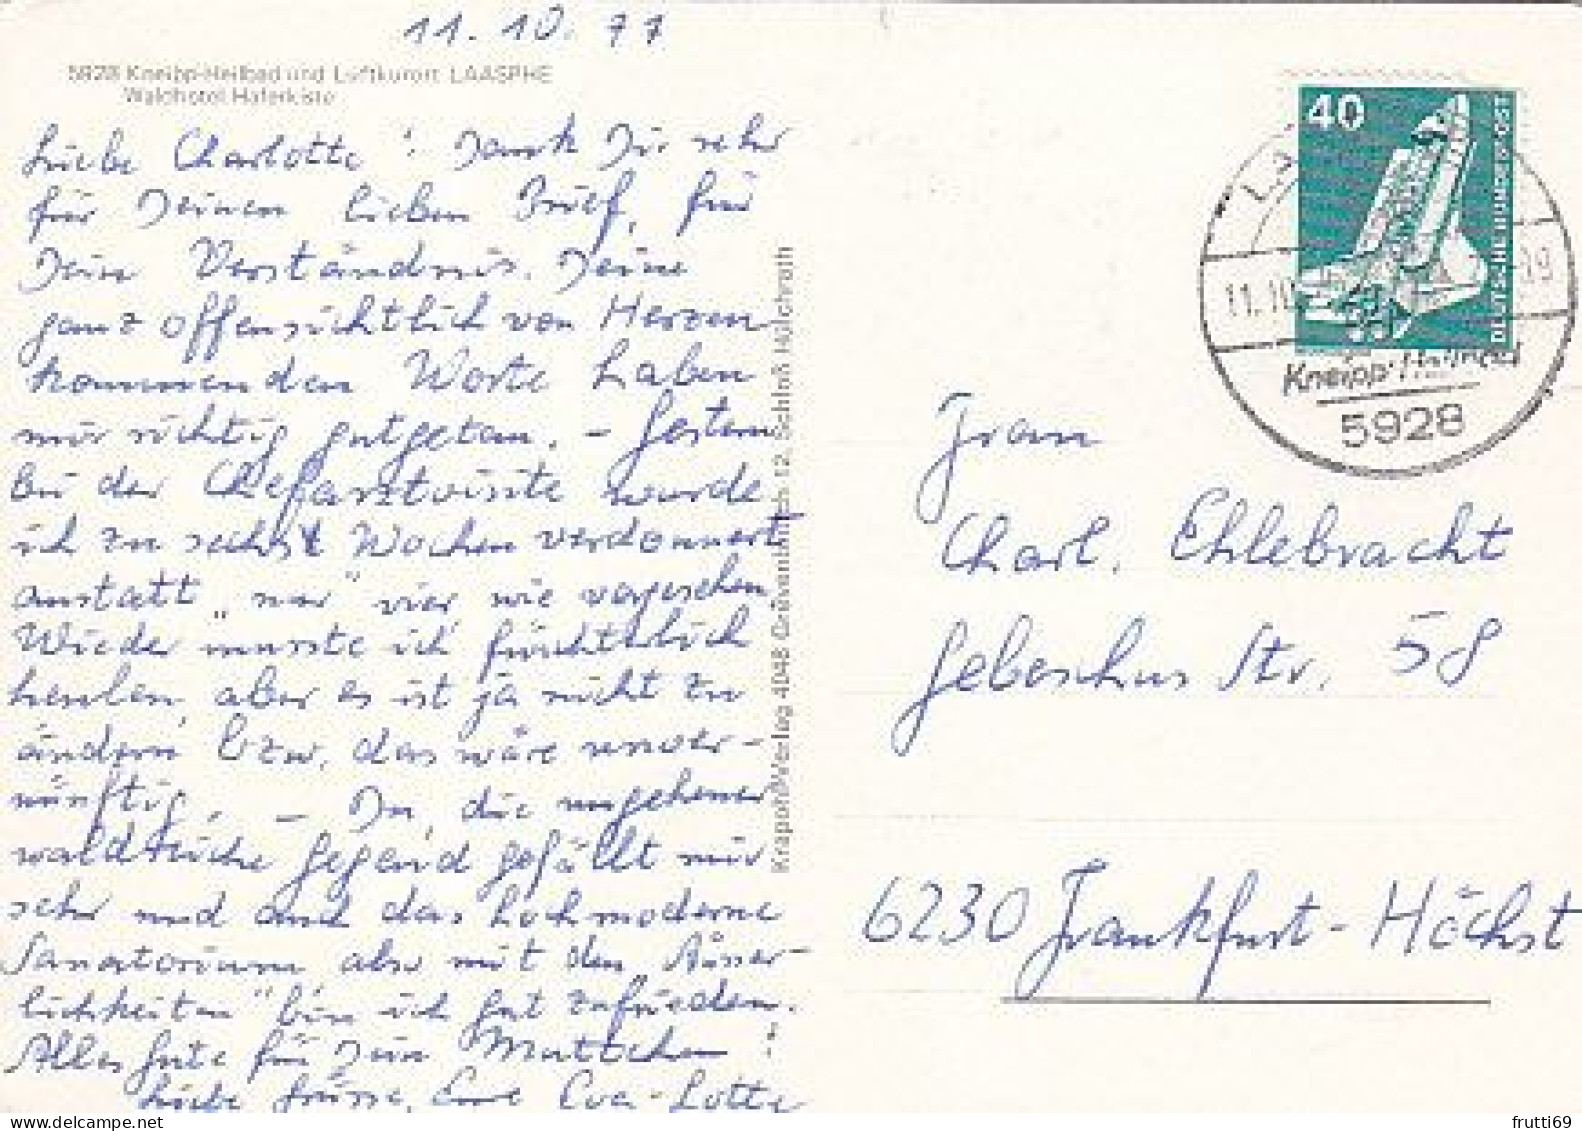 11. 10. 77
5928 Kneipp-Heilbad und Luftkurort LAASPHE
Waldhotel Haferkiste
Liebe Charlotte! Dank Dir sehr
für Deinen lieben Brief, für
Dein Verständnis. Deine
ganz offensichtlich von Herzen
kommenden Worte haben
mir richtig gutgetan. – Gestern
bei der Chefarztvisite wurde
ich zu sechs Wochen verdonnert
anstatt „nur" vier wie vorgesehen
Wieder musste ich fürchterlich
heulen, aber es ist ja nicht zu
ändern bzw. das wäre unver-
nünftig. – Ja, die ungeheuer
waldreiche Gegend gefällt mir
sehr und auch das hochmoderne
Sanatorium, also mit den „Äusser-
lichkeiten" bin ich gut zufrieden.
Alles Gute für Dein Muttchen!
Liebe Grüsse, Eure Eva-Lotte
Krapohl-Verlag 4048 Grevenbroich 12, Schloß Hülchrath
40
DEUTSCHE BUNDESPOST
11.10
19
Kneipp-
5928
Frau
Charl. Ehlebracht
Gebeschus Str. 58
6230 Frankfurt-Höchst
frutti69